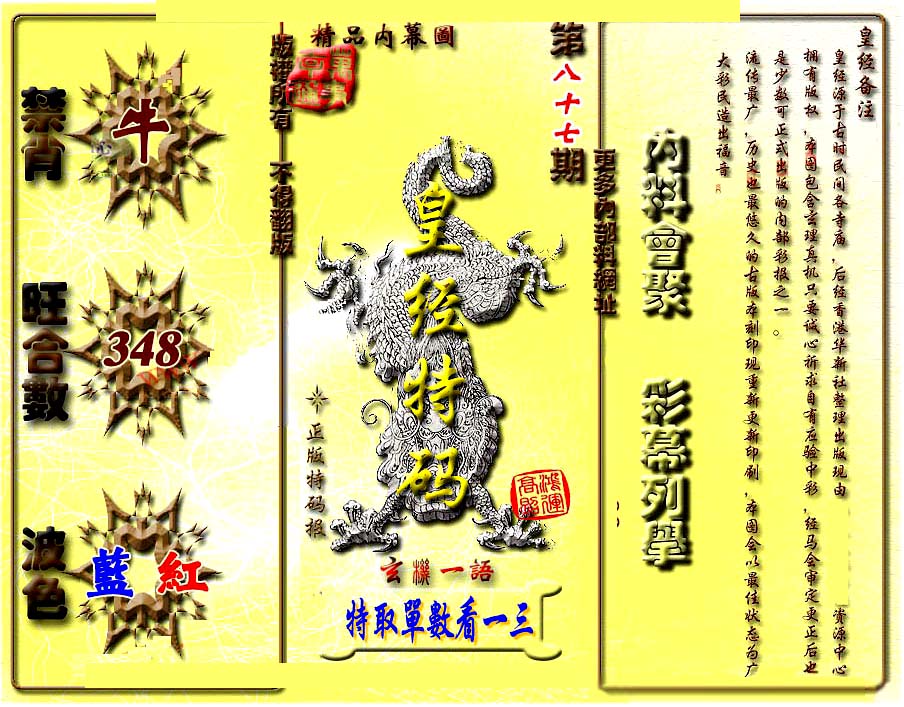 皇经备注
皇经源于古时民间各寺庙，后经香港华新社整理出版现由 資源中心
拥有版权，本图包含玄理真机只要诚心祈求自有应验中彩，经马会审定更正后也
是少数可正式出版的内部彩报之一。
流传最广，历史也最悠久的古版本刻印现重新更新印刷，本图会以最佳状态为广
大彩民造出福音。
内料會聚 彩幕列舉
更多内部料網址
第八十七期
精品内幕圖
版權所有 不得翻版
皇经特码
正版特码报
鴻運
高照
玄機一語
特取單數看一三
禁肖
牛
旺合數
348
波色
藍 紅